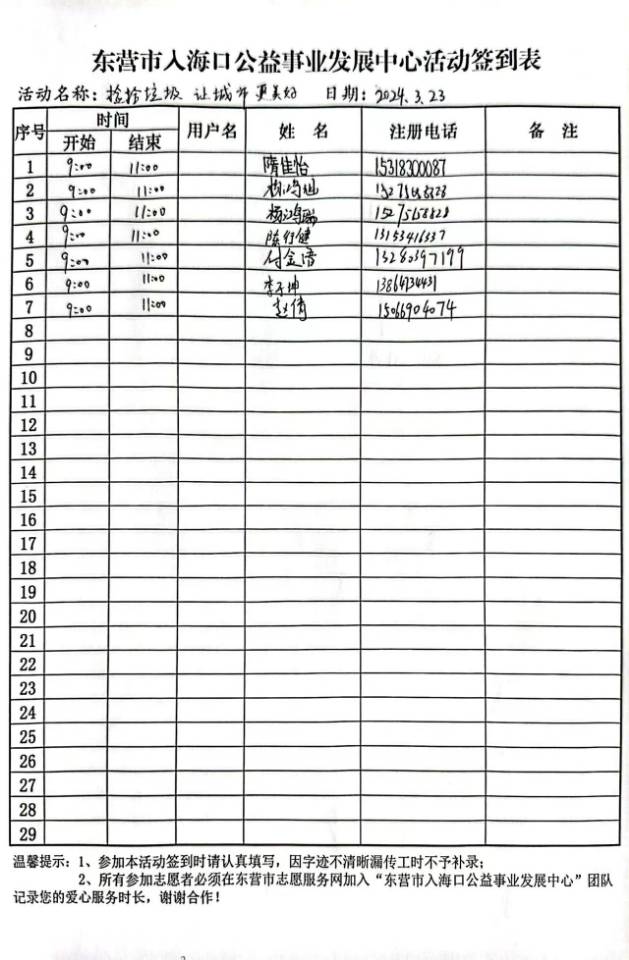 东营市入海口公益事业发展中心活动签到表
活动名称：捡拾垃圾 让城市更美好 日期：2024.3.23
序号 时间 用户名 姓名 注册电话 备注
开始 结束
1 9:00 11:00 隋佳怡 15318300087
2 9:00 11:00
3 9:00 11:00 杨鸿瑞
4 9:00 11:00 陈行健 13153416337
5 9:00 11:00 付金 13280397199
6 9:00 11:00 李子坤 13864734431
7 9:00 11:00 赵倩 15066904074
8
9
10
11
12
13
14
15
16
17
18
19
20
21
22
23
24
25
26
27
28
29
温馨提示：1、参加本活动签到时请认真填写，因字迹不清晰漏传工时不予补录；
2、所有参加志愿者必须在东营市志愿服务网加入“东营市入海口公益事业发展中心”团队
记录您的爱心服务时长，谢谢合作！